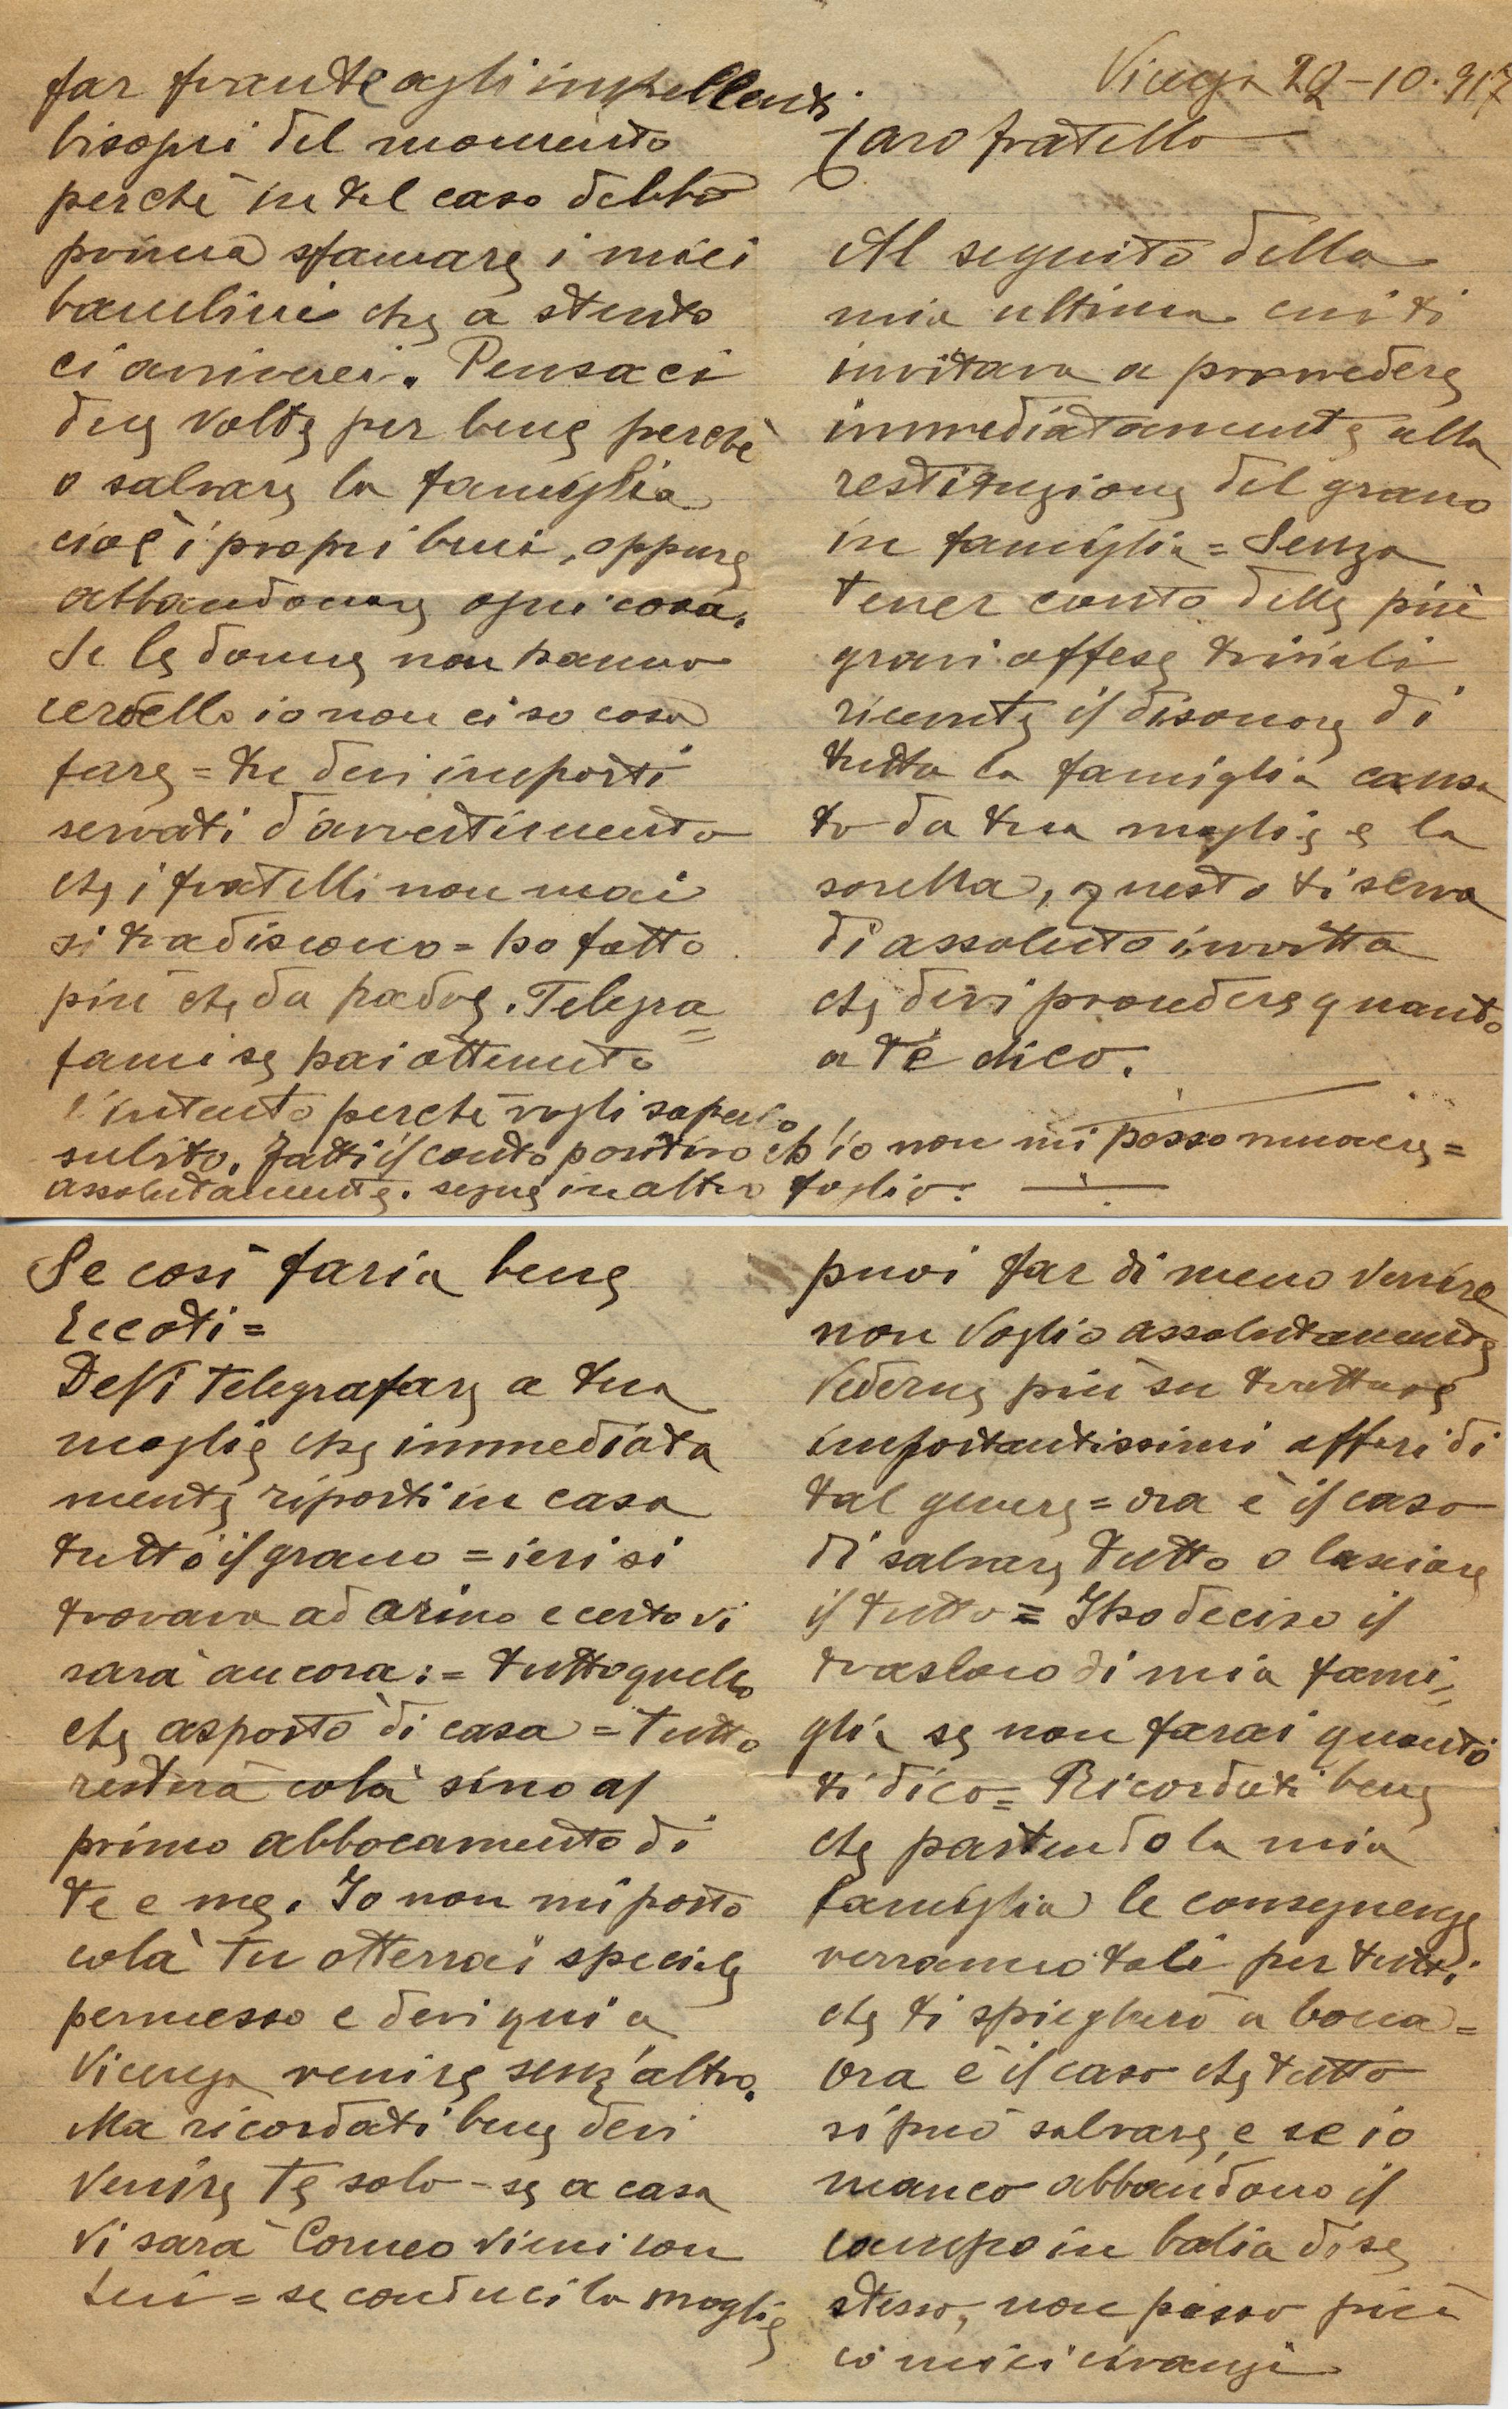 Vicenza 29-10-917
Caro fratello
Al seguito della
mia ultima cui ti
invitava a provvedere
immediatamente alla
restituzione del grano
in famiglia = Senza
tener conto delle più
gravi offese triviali
ricevute il disonore di
tutta la famiglia causa
to da tua moglie e la
sorella, questo ti serva
di assoluto invitto
che devi provedere quanto
a te dico.
Se cosi faria bene
Eccoti =
Devi telegrafare a tua
moglie che immediata
mente riporti in casa
tutto il grano = ieri si
trovava ad arino e certo vi
sarà ancora: = tutto quello
che asportò di casa = tutto
resterà colà sino al
primo abboccamento di
te e me. Io non mi porto
colà tu otterrai speciale
permesso e devi qui a
Vicenza venire senz'altro.
Ma ricordati bene devi
venire te solo - se a casa
vi sarà Corneo vieni con
lui = se conduci la moglie
puoi far di meno venire
non voglio assolutamente
vederne più su trattare
importantissimi affari di
tal genere = ora è il caso
di salvare tutto o lasciare
il tutto = Ho deciso il
trasloco di mia fami=
glia se non farai quanto
ti dico = Ricordati bene
che partendo la mia
famiglia le conseguenze
verranno tali per tutti
che ti spiegherò a bocca =
ora è il caso che tutto
si può salvare, e se io
manco abbandono il
campo in balia di se
stesso, non posso più
coi miei civanzi
far frante agli impellenti
bisogni del momento
perchè in tal caso debbo
prima sfamare i miei
bambini che a stento
ci arriverei. Pensaci
due volte per bene perchè
o salvare la famiglia
cioè i propri beni, oppure
abbandonare ogni cosa.
Se le donne non hanno
cervello io non ci so cosa
fare = tu devi importi
servati d'avvertimento
che i fratelli non mai
si tradiscono = ho fatto
più che da padre. Telegra=
fami se hai ottenuto
l'intento perchè vogli saperlo
subito. Fatti il conto positivo ch'io non mi posso muovere =
assolutamente. segue in altro foglio: